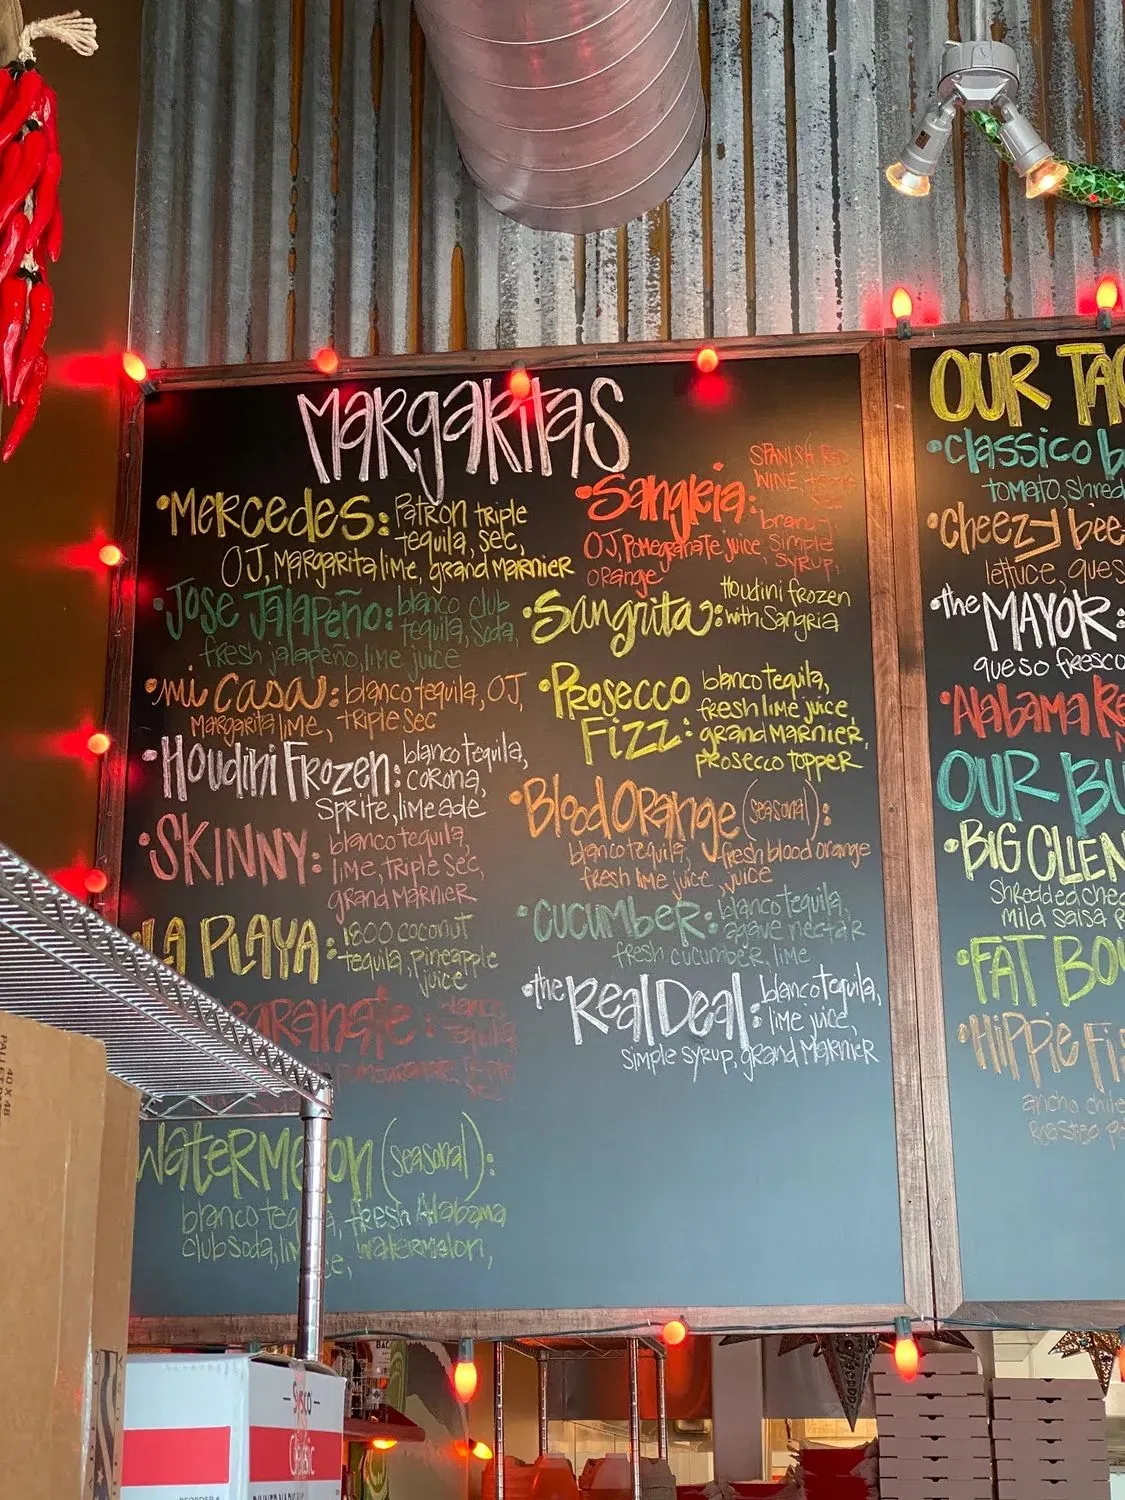 MARGARITAS
•MERCEDES: PATRON TRIPLE
tequila, sec,
OJ, MARGARITA lime, grand MARNIER
•JOSE JALAPEÑO: blanco club
tequila, soda,
fresh jalapeño, lime juice
•mi CASA: blanco tequila, OJ,
MARGARITA lime, triple sec
•Houdini Frozen: blanco tequila,
corona,
SPRITE, limeade
•SKINNY: blanco tequila,
lime, TRIPLE SEC,
grand MARNIER
LA PLAYA: 1800 coconut
tequila, pineapple
juice
WATERMELON (seasonal):
blanco fresh Alabama
club soda, watermelon,
•Sangria: SPANISH RED
WINE,
brandy,
OJ, Pomegranate juice, simple
syrup,
ORange
•Sangrita: Houdini frozen
with Sangria
•Prosecco blanco tequila,
Fizz: fresh lime juice,
grand MARNIER,
PROSECCO TOPPER
•Blood ORange (seasonal):
blanco tequila, fresh blood orange
fresh lime juice, juice
•CUCUMBER: blanco tequila,
agave nectar
fresh cucumber, lime
•the Real Deal: blanco tequila,
lime juice,
simple syrup, grand MARNIER
OUR
•Classico
tomato,
•Cheezy
lettuce,
•the MAYOR:
queso fresco
•Alabama
OUR
•BIG
shredded
mild salsa
•FAT
•HIPPIE
ancho
Roasted
PALLET
40 X 48
Sysco
Classic